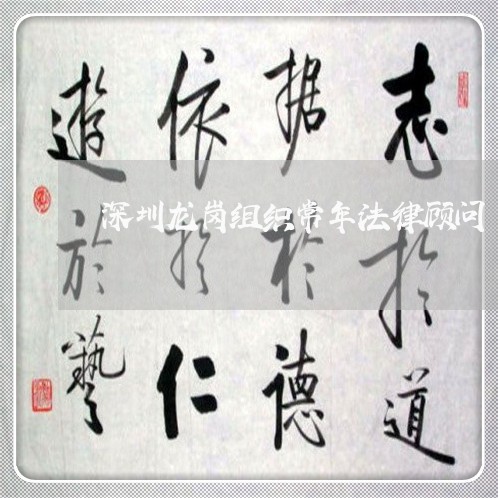 志於道
据於德
依於仁
遊於藝
深圳龙岗组织常年法律顾问